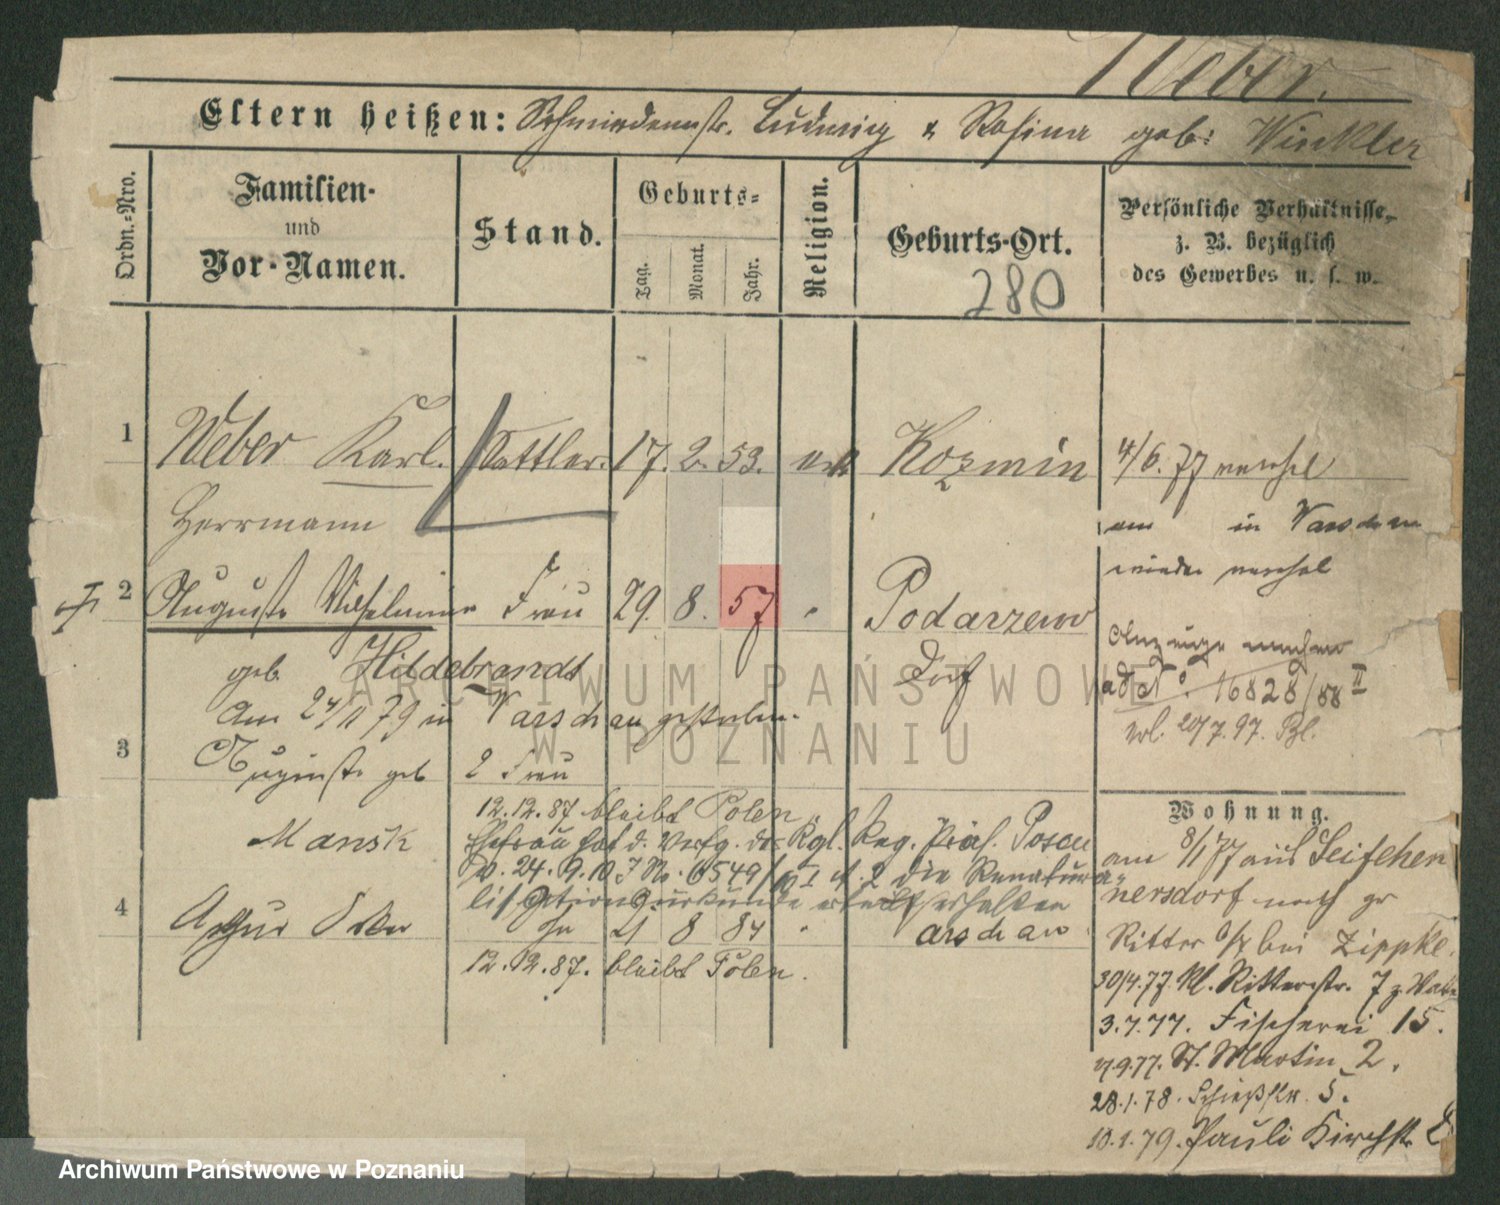 Weber.
Eltern heißen: Schmiedemstr. Ludwig & Rosina geb: Winkler
Ordn.-Nro.
Familien-
und
Vor-Namen.
Stand.
Geburts-
Tag.
Monat.
Jahr.
Religion.
Geburts-Ort.
280
Persönliche Verhältnisse,
z. B. bezüglich
des Gewerbes u. s. w.
1 Weber Karl. Sattler. 17. 2. 53. Kozmin 4/6. 77
Herrmann
in Warschau
wieder
2 Auguste Wilhelmine Frau 29. 8. 57 Podarzewo
geb. Hildebrandt Dorf
ad No. 16828/88 II
am 24/11 79 in Warschau gestorben.
20/7. 97.
3 Auguste geb 2 Frau
Mansk
12.12.87 bleibt Polen
Ehefrau hat d. Verfg. der Kgl. Reg. Präs. Posen
v. 24. 9. 10 J No. 6549/10 I A. 2 die Renatura-
lisationsurkunde erhalten
4 Arthur 21 8 84 Warschau
12.12.87. bleibt Polen.
Wohnung.
am 8/11 77 aus Seifehen
nersdorf nach gr
Ritter bei Zippke.
30/4.77. Kl. Ritterstr. 7
3.7.77. Fischerei 15.
9.77. St. Martin 2.
28.1.78. Schießstr. 5.
10.1.79. Pauli Kirchstr
ARCHIWUM PAŃSTWOWE
W POZNANIU
Archiwum Państwowe w Poznaniu